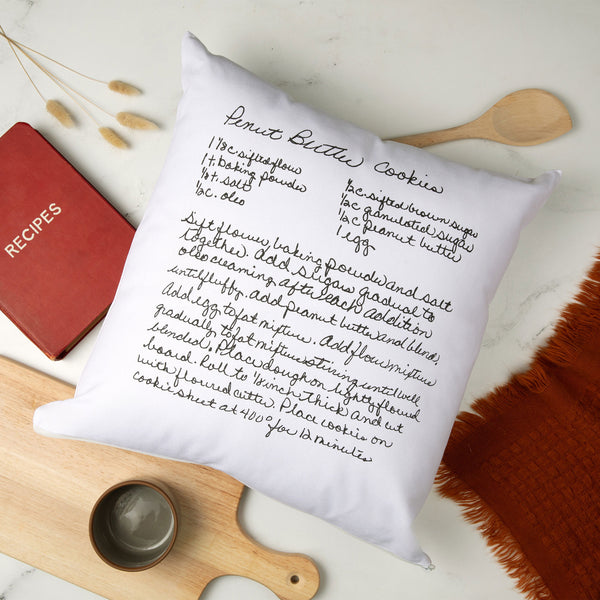 RECIPES
Penut Butter Cookies
1 1/8 c. sifted flow
1 t. baking powder
1/8 t. salt
1/2 c. oleo
1/2 c. sifted brown sugar
1/2 c granulated sugar
1/2 c peanut butter
1 egg
Syft flower, baking powder and salt
together. Add sugar gradual to
oleo creaming after each addition
until fluffy. add peanut butter and blend,
Add egg to fat mixture. Add flow mixture
gradually to fat mixture stiring until well
blended, Place dough on lightly floured
board. Roll to 1/8 inch thick and cut
with floured cutter. Place cookies on
cookie sheet at 400° for 12 minutes